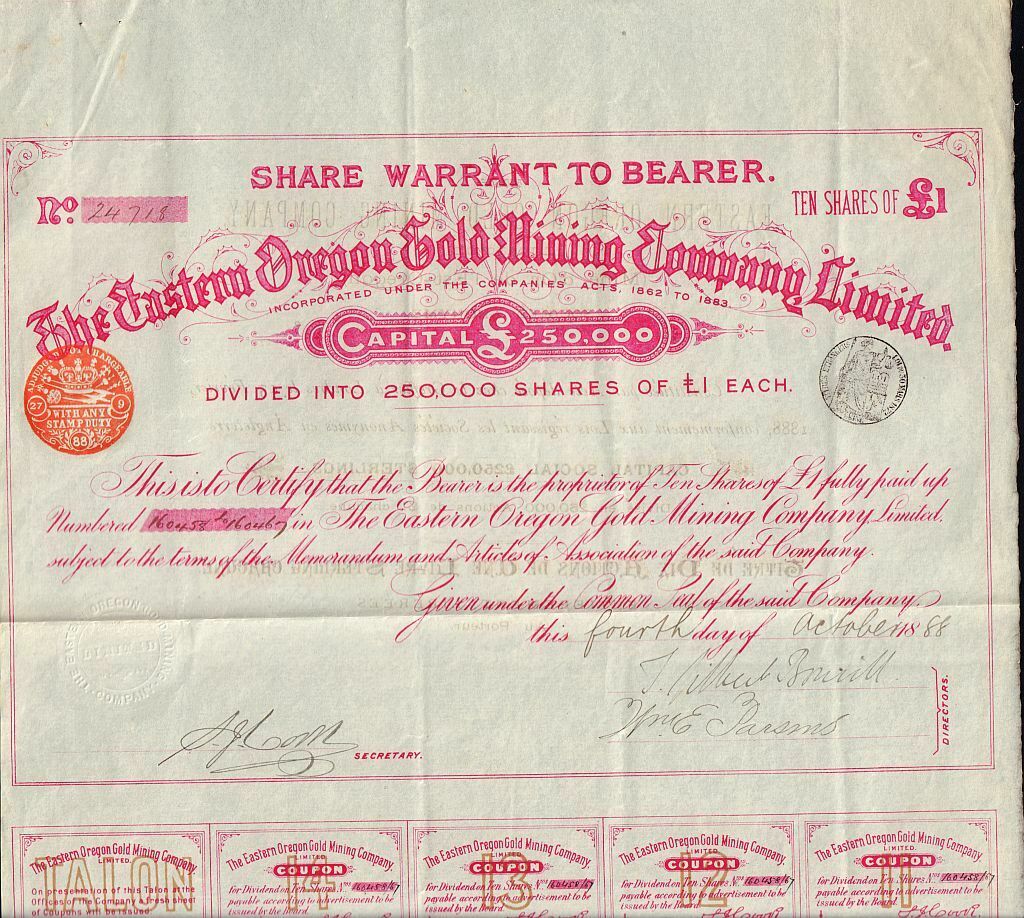 SHARE WARRANT TO BEARER.
No. 24718
TEN SHARES OF £1
The Eastern Oregon Gold Mining Company Limited.
INCORPORATED UNDER THE COMPANIES' ACTS, 1862 TO 1883.
CAPITAL £250,000
DIVIDED INTO 250,000 SHARES OF £1 EACH.
ADJUDGED NOT CHARGEABLE
27 9
WITH ANY
STAMP DUTY
88
This is to Certify that the Bearer is the proprietor of Ten Shares of £1 fully paid up
Numbered 160458 to 160467 in The Eastern Oregon Gold Mining Company Limited,
subject to the terms of the Memorandum and Articles of Association of the said Company.
Given under the Common Seal of the said Company,
this fourth day of October 1888
THE EASTERN OREGON GOLD MINING COMPANY
LIMITED
Wm E Parsons
DIRECTORS.
SECRETARY.
TALON
The Eastern Oregon Gold Mining Company,
LIMITED.
On presentation of this Talon at the
Offices of the Company a fresh sheet
of Coupons will be issued.
14
The Eastern Oregon Gold Mining Company,
LIMITED.
COUPON
for Dividend on Ten Shares Nos 160458/67
payable according to advertisement to be
issued by the Board.
13
The Eastern Oregon Gold Mining Company,
LIMITED.
COUPON
for Dividend on Ten Shares Nos 160458/67
payable according to advertisement to be
issued by the Board.
12
The Eastern Oregon Gold Mining Company,
LIMITED.
COUPON
for Dividend on Ten Shares Nos 160458/67
payable according to advertisement to be
issued by the Board.
11
The Eastern Oregon Gold Mining Company,
LIMITED.
COUPON
for Dividend on Ten Shares Nos 160458/67
payable according to advertisement to be
issued by the Board.